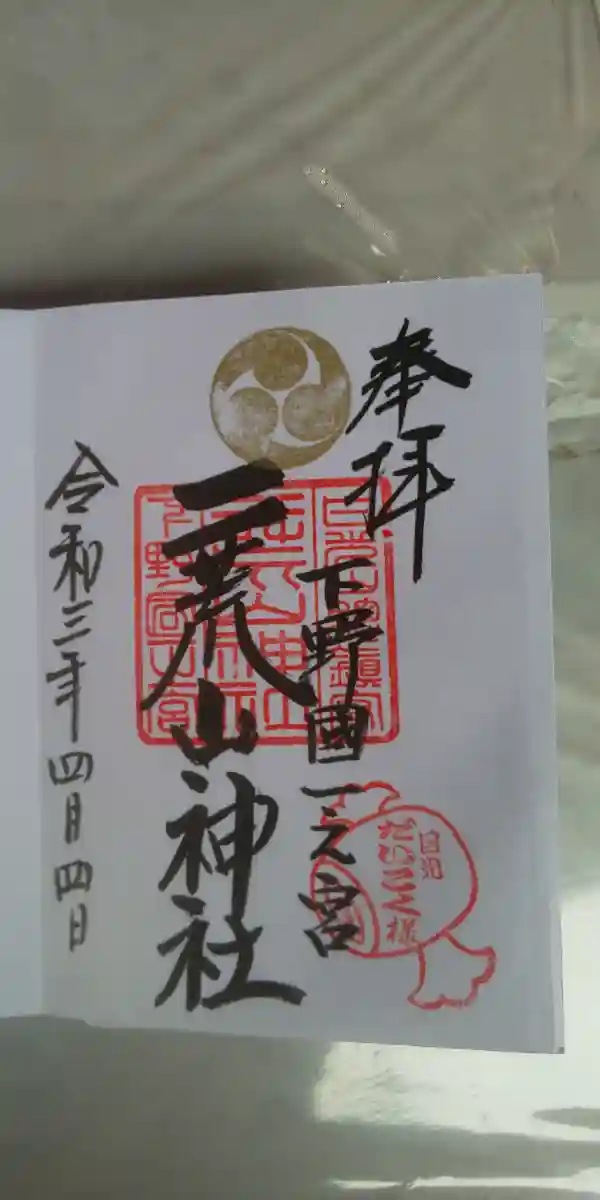 奉拝
下野國一之宮
二荒山神社
令和三年四月四日
日光
だいこく様